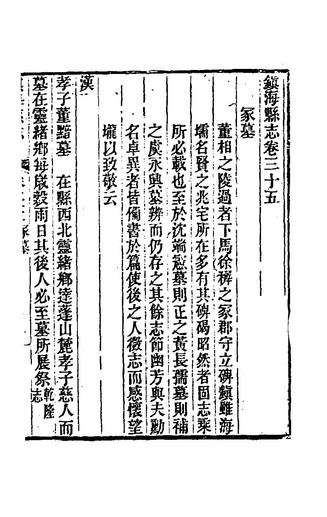 鎮海縣志卷三十五
冢墓
董相之陵過者下馬徐穉之冢郡守立碑鎮雖海
壖名賢之兆宅所在多有其碑碣昭然者固志乘
所必載也至於沈端憲墓則正之黃長孺墓則補
之虞永興墓辨而仍存之其餘志節幽芳與夫勳
名卓異者皆備書於篇使後之人徵志而感懷望
壠以致敬云
漢
孝子董黯墓 在縣西北靈緒鄉達蓬山麓孝子慈人而
墓在靈緒鄉每歲穀雨日其後人必至墓所展祭乾隆志